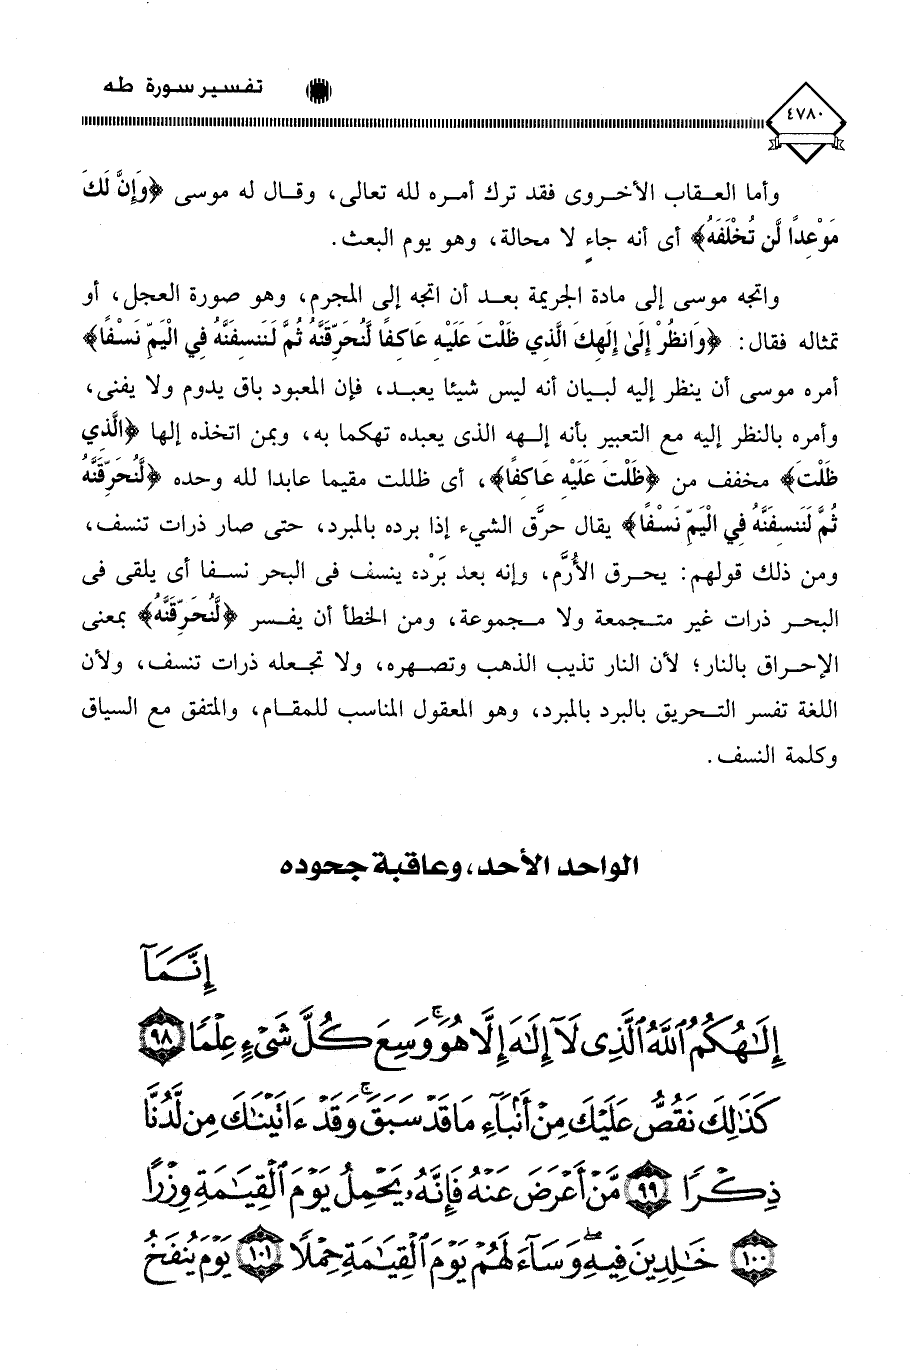 تفسير سورة طه
٤٧٨٠
وأما العقاب الأخروى فقد ترك أمره لله تعالى، وقال له موسى ﴿وَإِنَّ لَكَ
مَوْعِدًا لَّن تُخْلَفَهُ﴾ أى أنه جاءٍ لا محالة، وهو يوم البعث.
واتجه موسى إلى مادة الجريمة بعد أن اتجه إلى المجرم، وهو صورة العجل، أو
تمثاله فقال: ﴿وَانظُرْ إِلَىٰ إِلَٰهِكَ الَّذِي ظَلْتَ عَلَيْهِ عَاكِفًا لَّنُحَرِّقَنَّهُ ثُمَّ لَنَنسِفَنَّهُ فِي الْيَمِّ نَسْفًا﴾
أمره موسى أن ينظر إليه لبيان أنه ليس شيئا يعبد، فإن المعبود باق يدوم ولا يفنى،
وأمره بالنظر إليه مع التعبير بأنه إلهه الذى يعبده تهكما به، وبمن اتخذه إلها ﴿الَّذِي
ظَلْتَ﴾ مخفف من ﴿ظَلْتَ عَلَيْهِ عَاكِفًا﴾، أى ظللت مقيما عابدا لله وحده ﴿لَّنُحَرِّقَنَّهُ
ثُمَّ لَنَنسِفَنَّهُ فِي الْيَمِّ نَسْفًا﴾ يقال حرَّق الشيء إذا برده بالمبرد، حتى صار ذرات تنسف،
ومن ذلك قولهم: يحرق الأُرَّم، وإنه بعد بَرْده ينسف فى البحر نسفا أى يلقى فى
البحر ذرات غير متجمعة ولا مجموعة، ومن الخطأ أن يفسر ﴿لَّنُحَرِّقَنَّهُ﴾ بمعنى
الإحراق بالنار؛ لأن النار تذيب الذهب وتصهره، ولا تجعله ذرات تنسف، ولأن
اللغة تفسر التحريق بالبرد بالمبرد، وهو المعقول المناسب للمقام، والمتفق مع السياق
وكلمة النسف.
الواحد الأحد، وعاقبة جحوده
إِنَّمَآ
إِلَٰهُكُمُ ٱللَّهُ ٱلَّذِى لَآ إِلَٰهَ إِلَّا هُوَ ۚ وَسِعَ كُلَّ شَىْءٍ عِلْمًا ٩٨
كَذَٰلِكَ نَقُصُّ عَلَيْكَ مِنْ أَنۢبَآءِ مَا قَدْ سَبَقَ ۚ وَقَدْ ءَاتَيْنَٰكَ مِن لَّدُنَّا
ذِكْرًا ٩٩ مَّنْ أَعْرَضَ عَنْهُ فَإِنَّهُۥ يَحْمِلُ يَوْمَ ٱلْقِيَٰمَةِ وِزْرًا
١٠٠ خَٰلِدِينَ فِيهِ ۖ وَسَآءَ لَهُمْ يَوْمَ ٱلْقِيَٰمَةِ حِمْلًا ١٠١ يَوْمَ يُنفَخُ